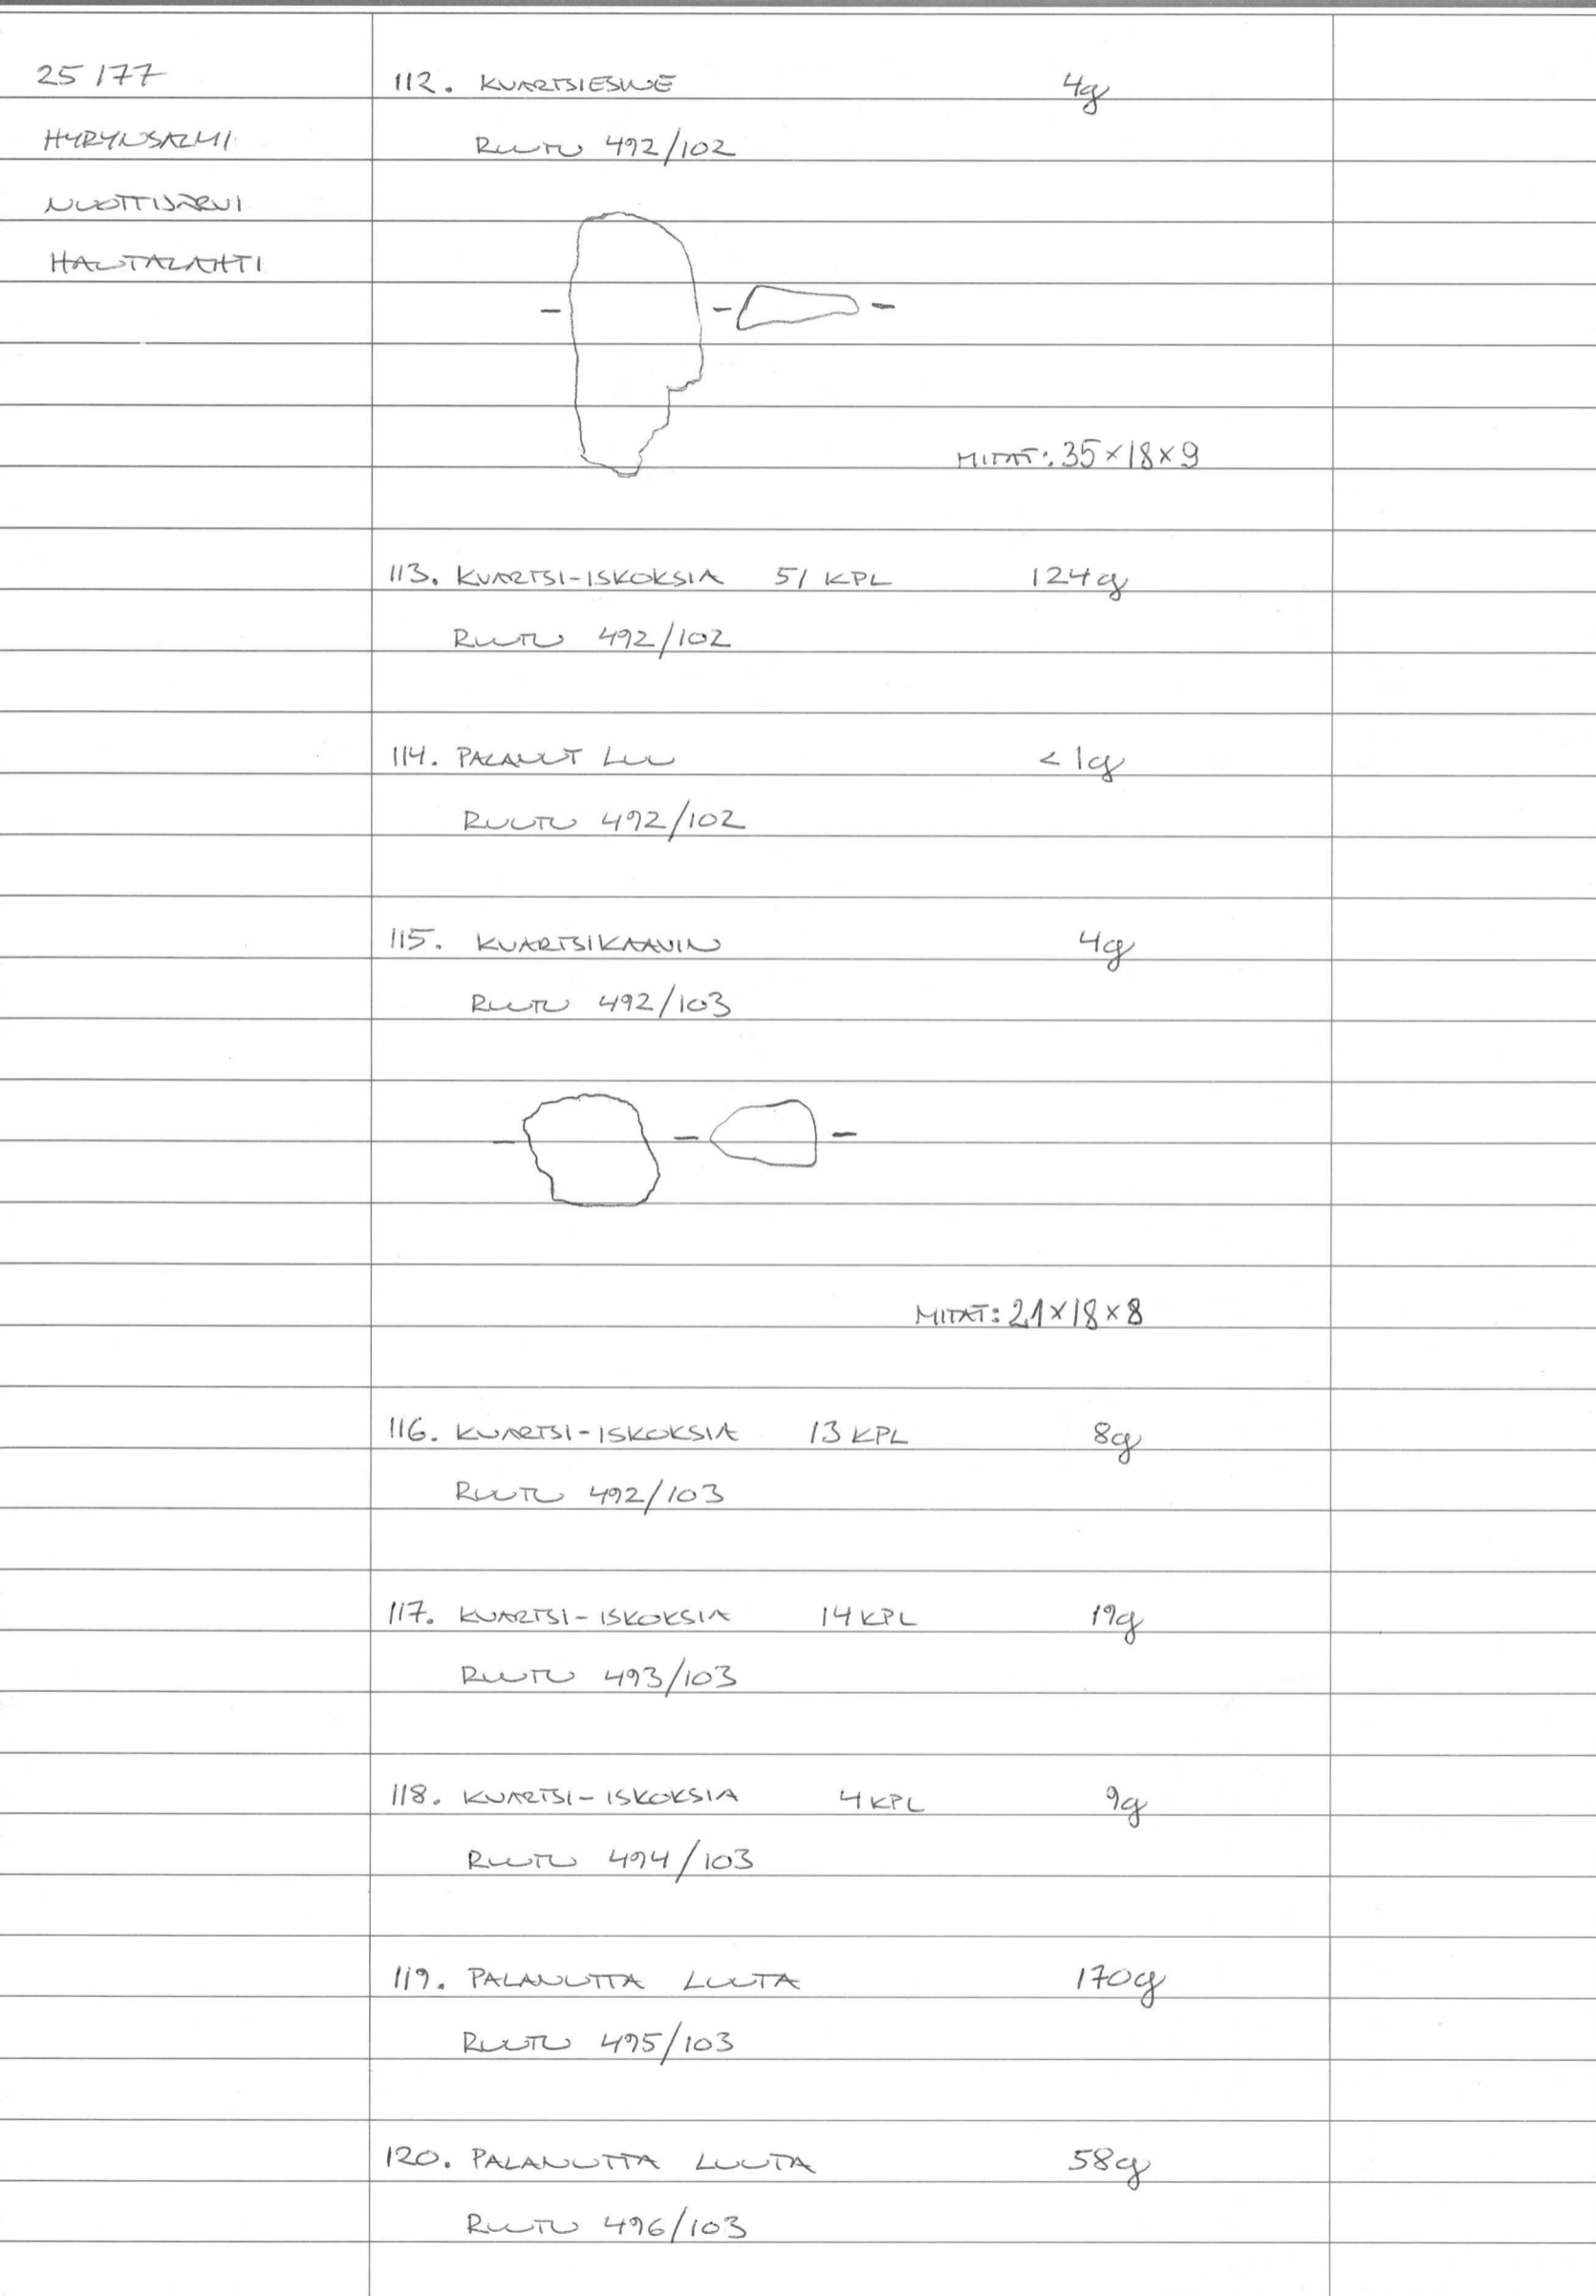 25177
HYRYNSALMI
NUOTTIJÄRVI
HAUTALAHTI
112. KVARTSIESINE 4g
RUUTU 492/102
MITAT: 35×18×9
113. KVARTSI-ISKOKSIA 51 KPL 124g
RUUTU 492/102
114. PALANUT LUU <1g
RUUTU 492/102
115. KVARTSIKAAVIN 4g
RUUTU 492/103
MITAT: 21×18×8
116. KVARTSI-ISKOKSIA 13 KPL 8g
RUUTU 492/103
117. KVARTSI-ISKOKSIA 14 KPL 19g
RUUTU 493/103
118. KVARTSI-ISKOKSIA 4 KPL 9g
RUUTU 494/103
119. PALANUTTA LUUTA 170g
RUUTU 495/103
120. PALANUTTA LUUTA 58g
RUUTU 496/103